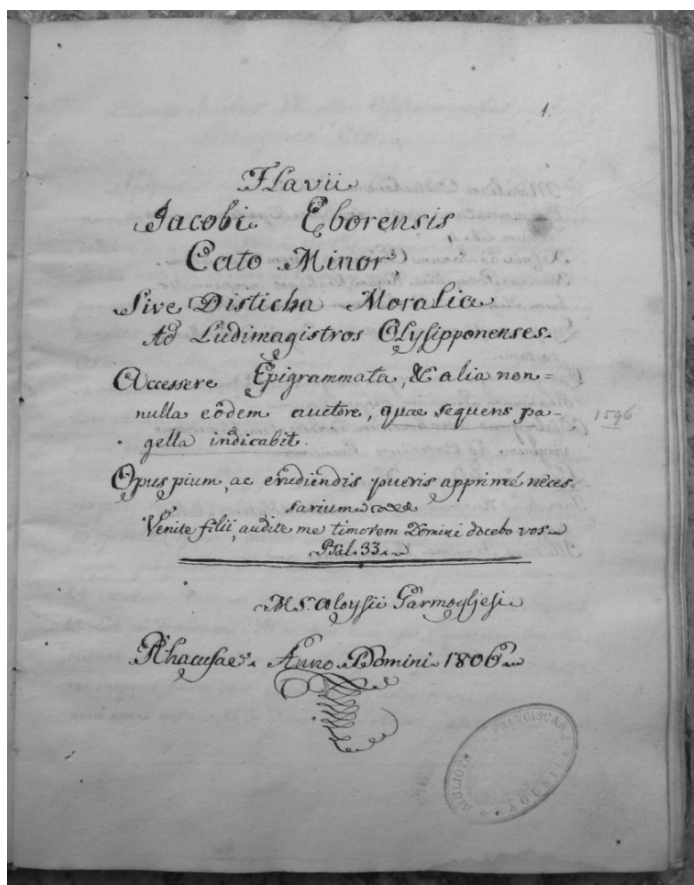 1.
Flavii
Jacobi Eborensis
Cato Minor
Sive Disticha Moralia
Ad Ludimagistros Olysipponenses.
Accessere Epigrammata, & alia non=
nulla eôdem auctore, quae sequens pa-
gella indicabit.
1596
Opus pium, ac erudiendis pueris apprimé neces
sarium
Venite filii, audite me timorem Domini docebo vos
Psal. 33
MS. Aloysii
Rhacusae. Anno Domini 1806
BIBLIOTHECA FRANCISCAN
RAGUSII